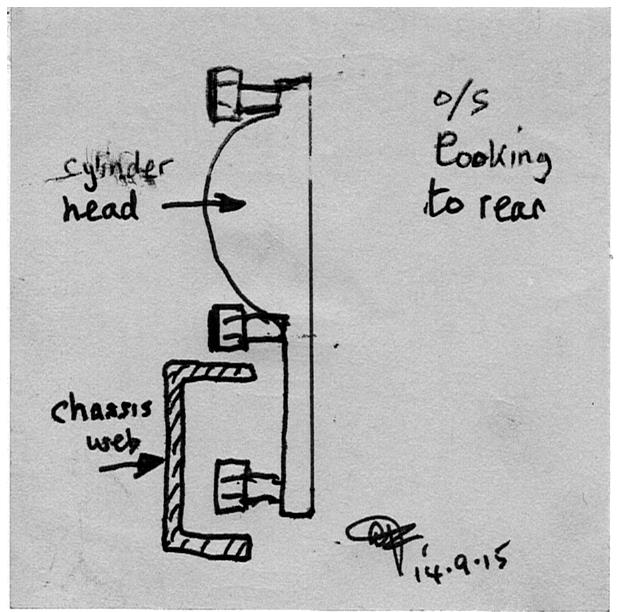 o/s
Looking
to rear
cylinder
head
chassis
web
14.9.15